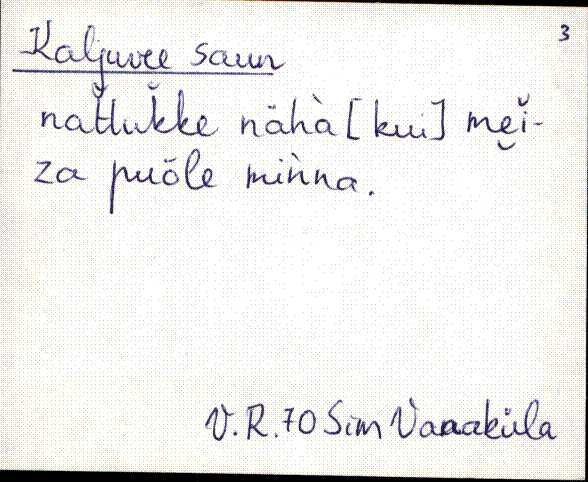 3
Kaljuvee saun
nat̆tŭkke nähà [kui] meĭ̯-
za puŏle miǹna.
V.R.70 Sim Vanaküla